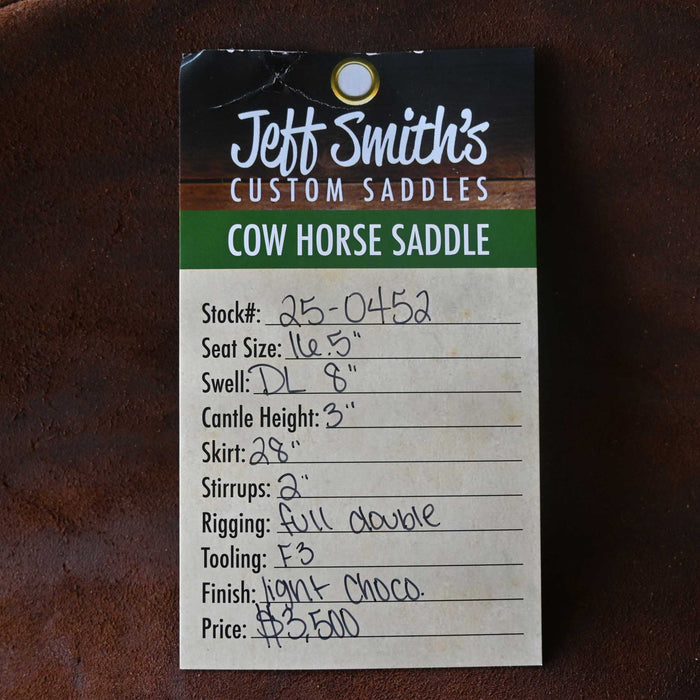 Jeff Smith's
CUSTOM SADDLES
COW HORSE SADDLE
Stock#: 25-0452
Seat Size: 16.5"
Swell: DL 8"
Cantle Height: 3"
Skirt: 28"
Stirrups: 2"
Rigging: full double
Tooling: F3
Finish: light Choco.
Price: $3,500